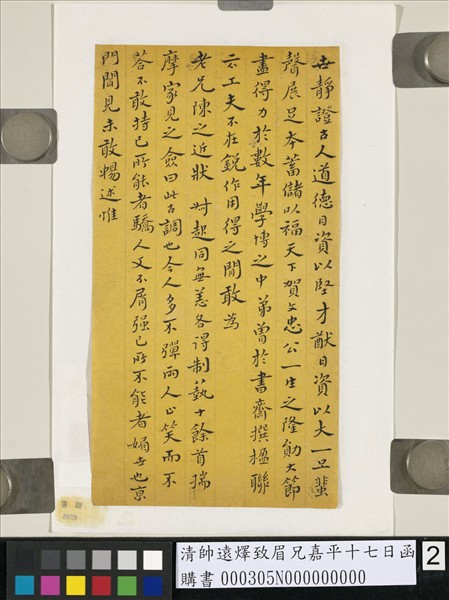 世靜證古人道德日資以堅才猷日資以大一旦蜚
聲展足夲蓄儲以福天下賀文忠公一生之隆勛大節
盡得力於數年學博之中弟曾於書齋撰楹聯
云工夫不在銳作用得之閒敢為
老兄陳之近狀起同無恙各得制藝十餘首揣
摩家見之僉曰此古調也今人多不彈兩人笑而不
答不敢持己所能者驕人又不屑强己所不能者媚世也京
門聞見未敢暢述惟
清帥遠燡致眉兄嘉平十七日函
購書 000305N000000000
2